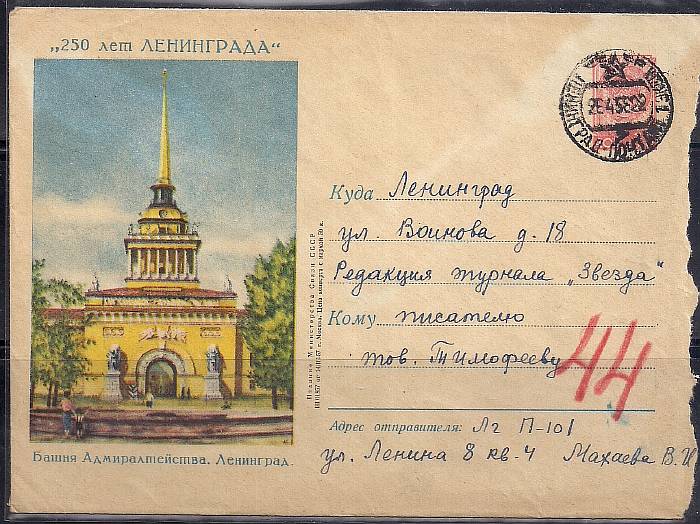 „250 лет ЛЕНИНГРАДА“
Куда Ленинград
ул. Воинова д. 18
Редакция журнала „Звезда“
Кому писателю
тов. Тимофееву
44
Адрес отправителя: Лг П-101
ул. Ленина 8 кв. 4 Махаева В. И
Башня Адмиралтейства. Ленинград.
Издание Министерства Связи СССР